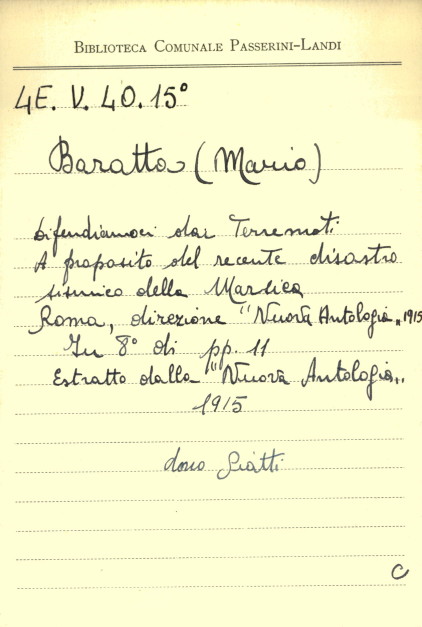 BIBLIOTECA COMUNALE PASSERINI-LANDI
4E. V. 40. 15°
Baratta (Mario)
Difendiamoci dai Terremoti
A proposito del recente disastro
sismico della Marsica
Roma, direzione "Nuova Antologia„ 1915
In 8° di pp. 11
Estratto dalla "Nuova Antologia„
1915
dono
C